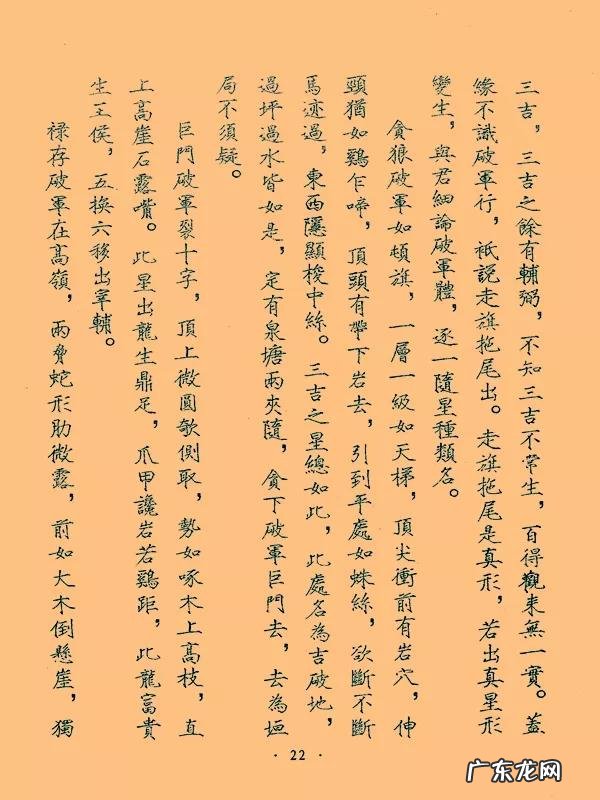 三吉，三吉之餘有輔弼，不知三吉不常生，百得觀来無一實。蓋
緣不識破軍行，衹説走旗拖尾出。走旗拖尾是真形，若出真星形
變生，與君細論破軍體，逐一隨星種類名。
貪狼破軍如頓旗，一層一級如天梯，頂尖衝前有岩穴，伸
頸猶如鷄乍啼，頂頭有帶下岩去，引到平處如蛛絲，欲斷不斷
馬迹過，東西隱顯梭中絲。三吉之星總如此，此處名為吉破地，
過坪過水皆如是，定有泉塘兩夾隨，貪下破軍巨門去，去為垣
局不須疑。
巨門破軍裂十字，頂上微圓欹側取，勢如啄木上高枝，直
上高崖石露嘴。此星出龍生鼎足，爪甲讒岩若鷄距，此龍富貴
生王侯，五換六移出宰輔。
禄存破軍在高嶺，兩脅蛇形肋微露，前如大木倒懸崖，獨
· 22 ·
广东龙网